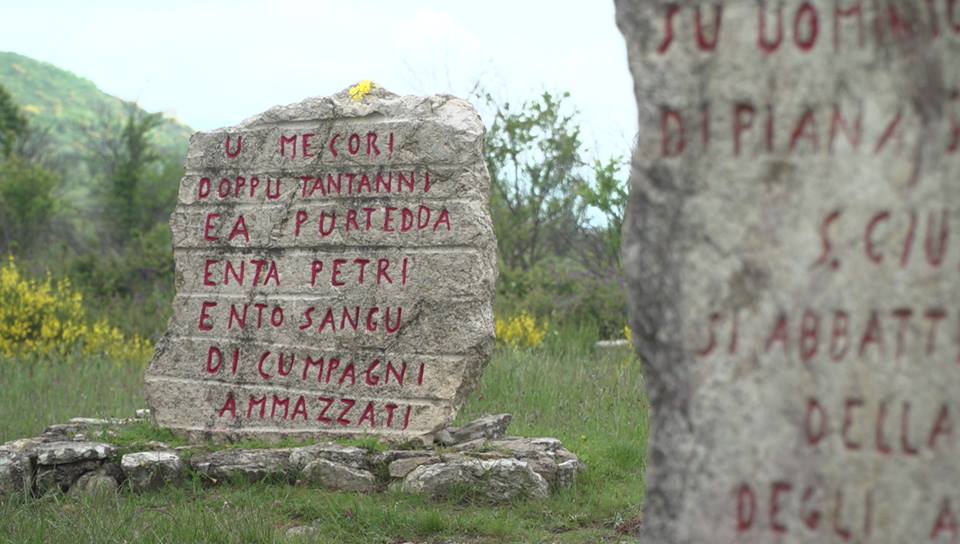 U ME CORI
DOPPU TANTANNI
EA PURTEDDA
ENTA PETRI
ENTO SANGU
DI CUMPAGNI
AMMAZZATI
SU UOMINI
DI PIANA
S. CIU
SI ABBATT
DELLA
DEGLI A